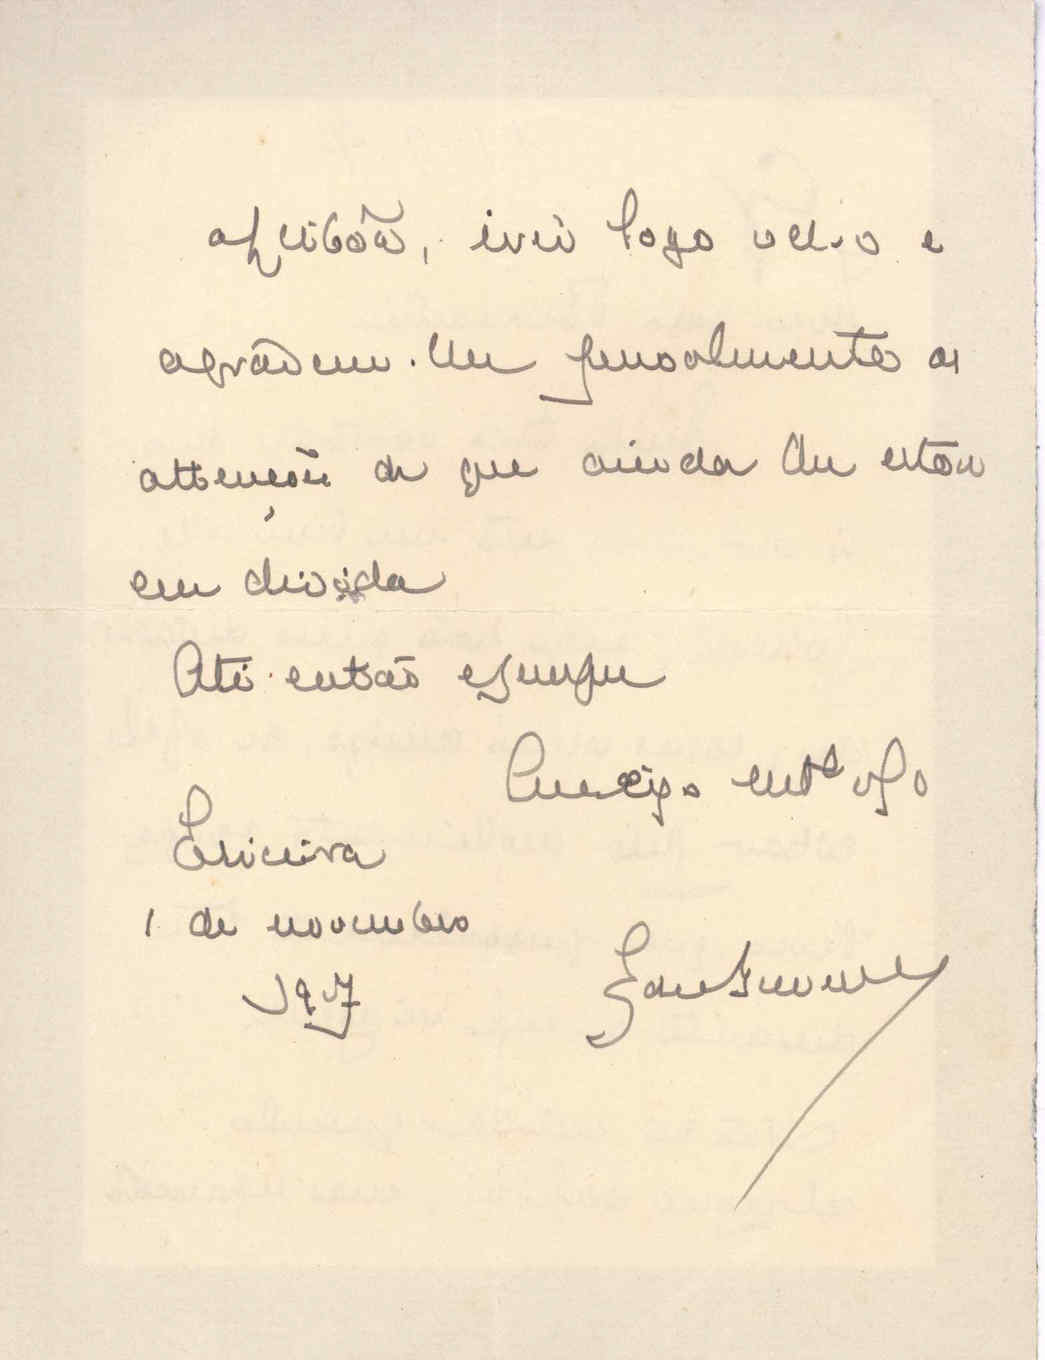 a Lisboa, irei logo vel-o e
agradecer-lhe pessoalmente as
attenções de que ainda lhe estou
em divida
Até então e sempre
Amigo mtº
Ericeira
1 de novembro